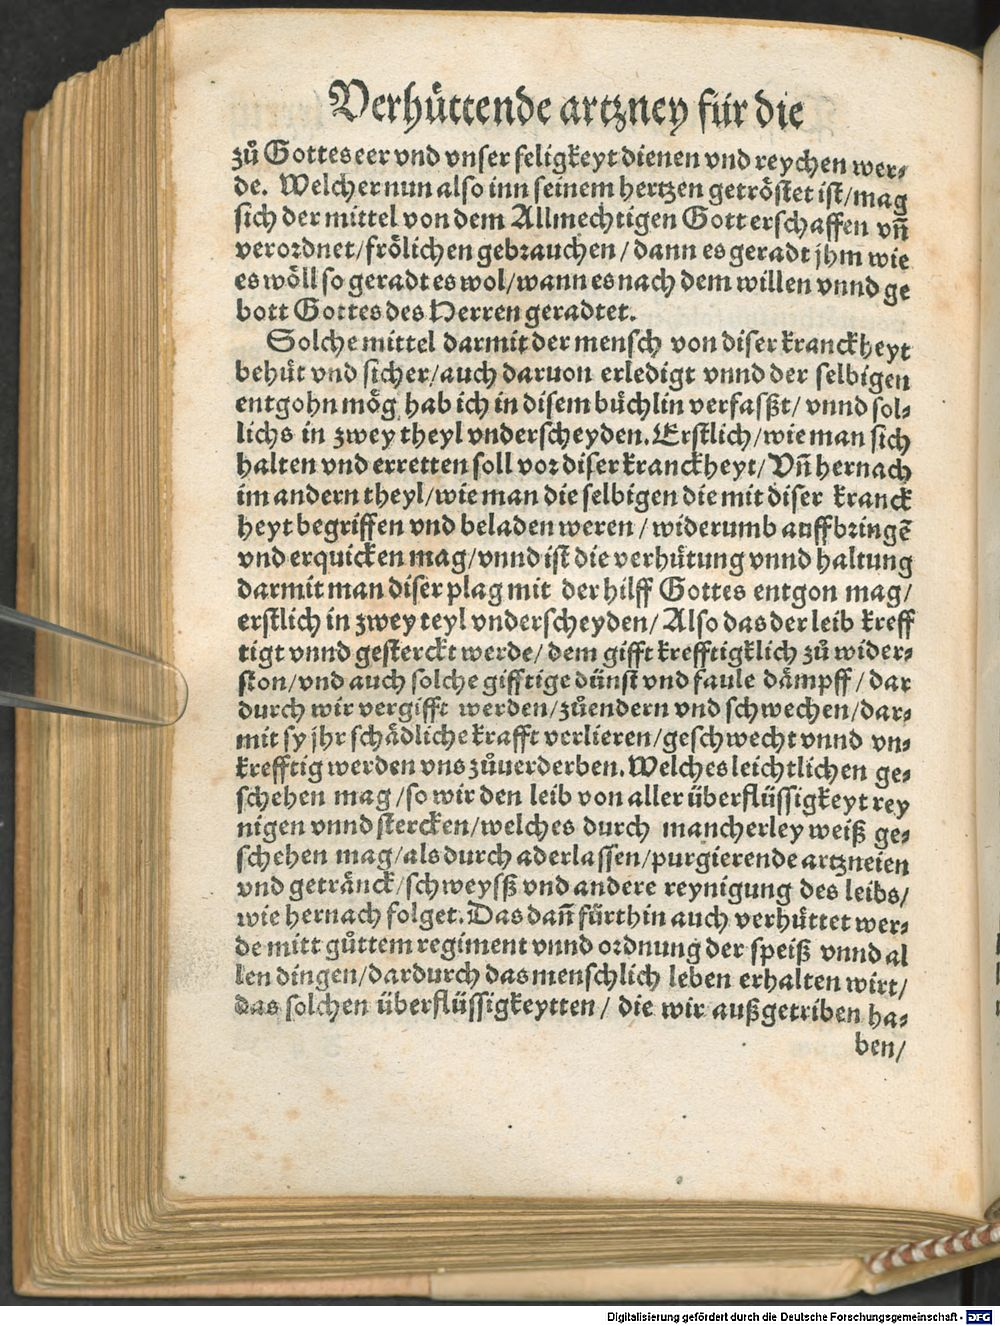 Verhůttende artzney für die
zů Gottes eer vnd vnser seligkeyt dienen vnd reychen wer⸗
de. Welcher nun also inn seinem hertzen getröstet ist/mag
sich der mittel von dem Allmechtigen Gott erschaffen vñ
verordnet/frölichen gebrauchen/dann es geradt jhm wie
es wöll so geradt es wol/wann es nach dem willen vnnd ge
bott Gottes des Herren geradtet.
Solche mittel darmit der mensch von diser kranckheyt
behüt vnd sicher/auch daruon erledigt vnnd der selbigen
entgohn mög hab ich in disem büchlin verfasßt/vnnd sol⸗
lichs in zwey theyl vnderscheyden. Erstlich/wie man sich
halten vnd erretten soll vor diser kranckheyt/Vñ hernach
im andern theyl/wie man die selbigen die mit diser kranck
heyt begriffen vnd beladen weren/widerumb auffbringē
vnd erquicken mag/vnnd ist die verhütung vnnd haltung
darmit man diser plag mit der hilff Gottes entgon mag/
erstlich in zwey teyl vnderscheyden/Also das der leib kreff
tigt vnnd gesterckt werde/dem gifft krefftigklich zů wider⸗
ston/vnd auch solche gifftige dünst vnd faule dämpff/dar
durch wir vergifft werden/zůendern vnd schwechen/dar⸗
mit sy jhr schädliche krafft verlieren/geschwecht vnnd vn⸗
krefftig werden vns zůuerderben. Welches leichtlichen ge⸗
schehen mag/so wir den leib von aller überflüssigkeyt rey
nigen vnnd stercken/welches durch mancherley weiß ge⸗
schehen mag/als durch aderlassen/purgierende artzneien
vnd getränck/schweysß vnd andere reynigung des leibs/
wie hernach folget. Das dañ fürthin auch verhüttet wer⸗
de mitt gůttem regiment vnnd ordnung der speiß vnnd al
len dingen/dardurch das menschlich leben erhalten wirt/
das solchen überflüssigkeytten/die wir außgetriben ha⸗
ben/
Digitalisierung gefördert durch die Deutsche Forschungsgemeinschaft - DFG